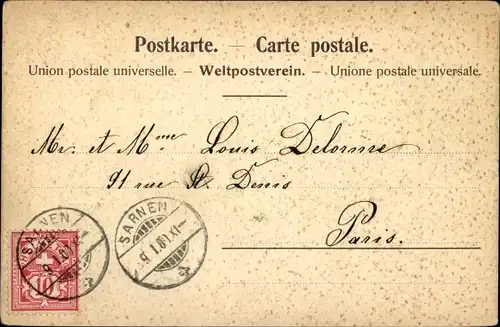 Postkarte. — Carte postale.
Union postale universelle. — Weltpostverein. — Unione postale universale.
Mr. et Mme Louis Delorme
91 rue St. Denis
Paris.
SARNEN
SARNEN
9.I.01.XI—
10